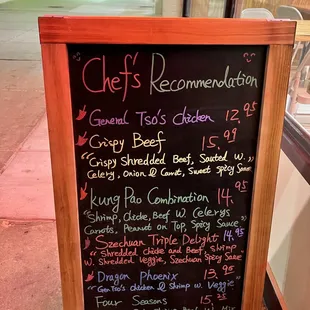 Chef's Recommendation
General Tso's Chicken 12.95
Crispy Beef 15.99
"Crispy Shredded Beef, Sauted W.
Celery, Onion & Carrot, Sweet Spicy Sauce"
Kung Pao Combination 14.95
"Shrimp, Chicke, Beef W. Celerys
Carrots, Peanut on Top, Spicy Sauce"
Szechuan Triple Delight 14.95
"Shredded chicke and Beef, shrimp
W. Shredded Veggie, Szechuan Spicy Sauce"
Dragon Phoenix 13.95
"Gen Tso's chicken & Shrimp w. Veggie"
Four Seasons 15.25
Beef W. Mix